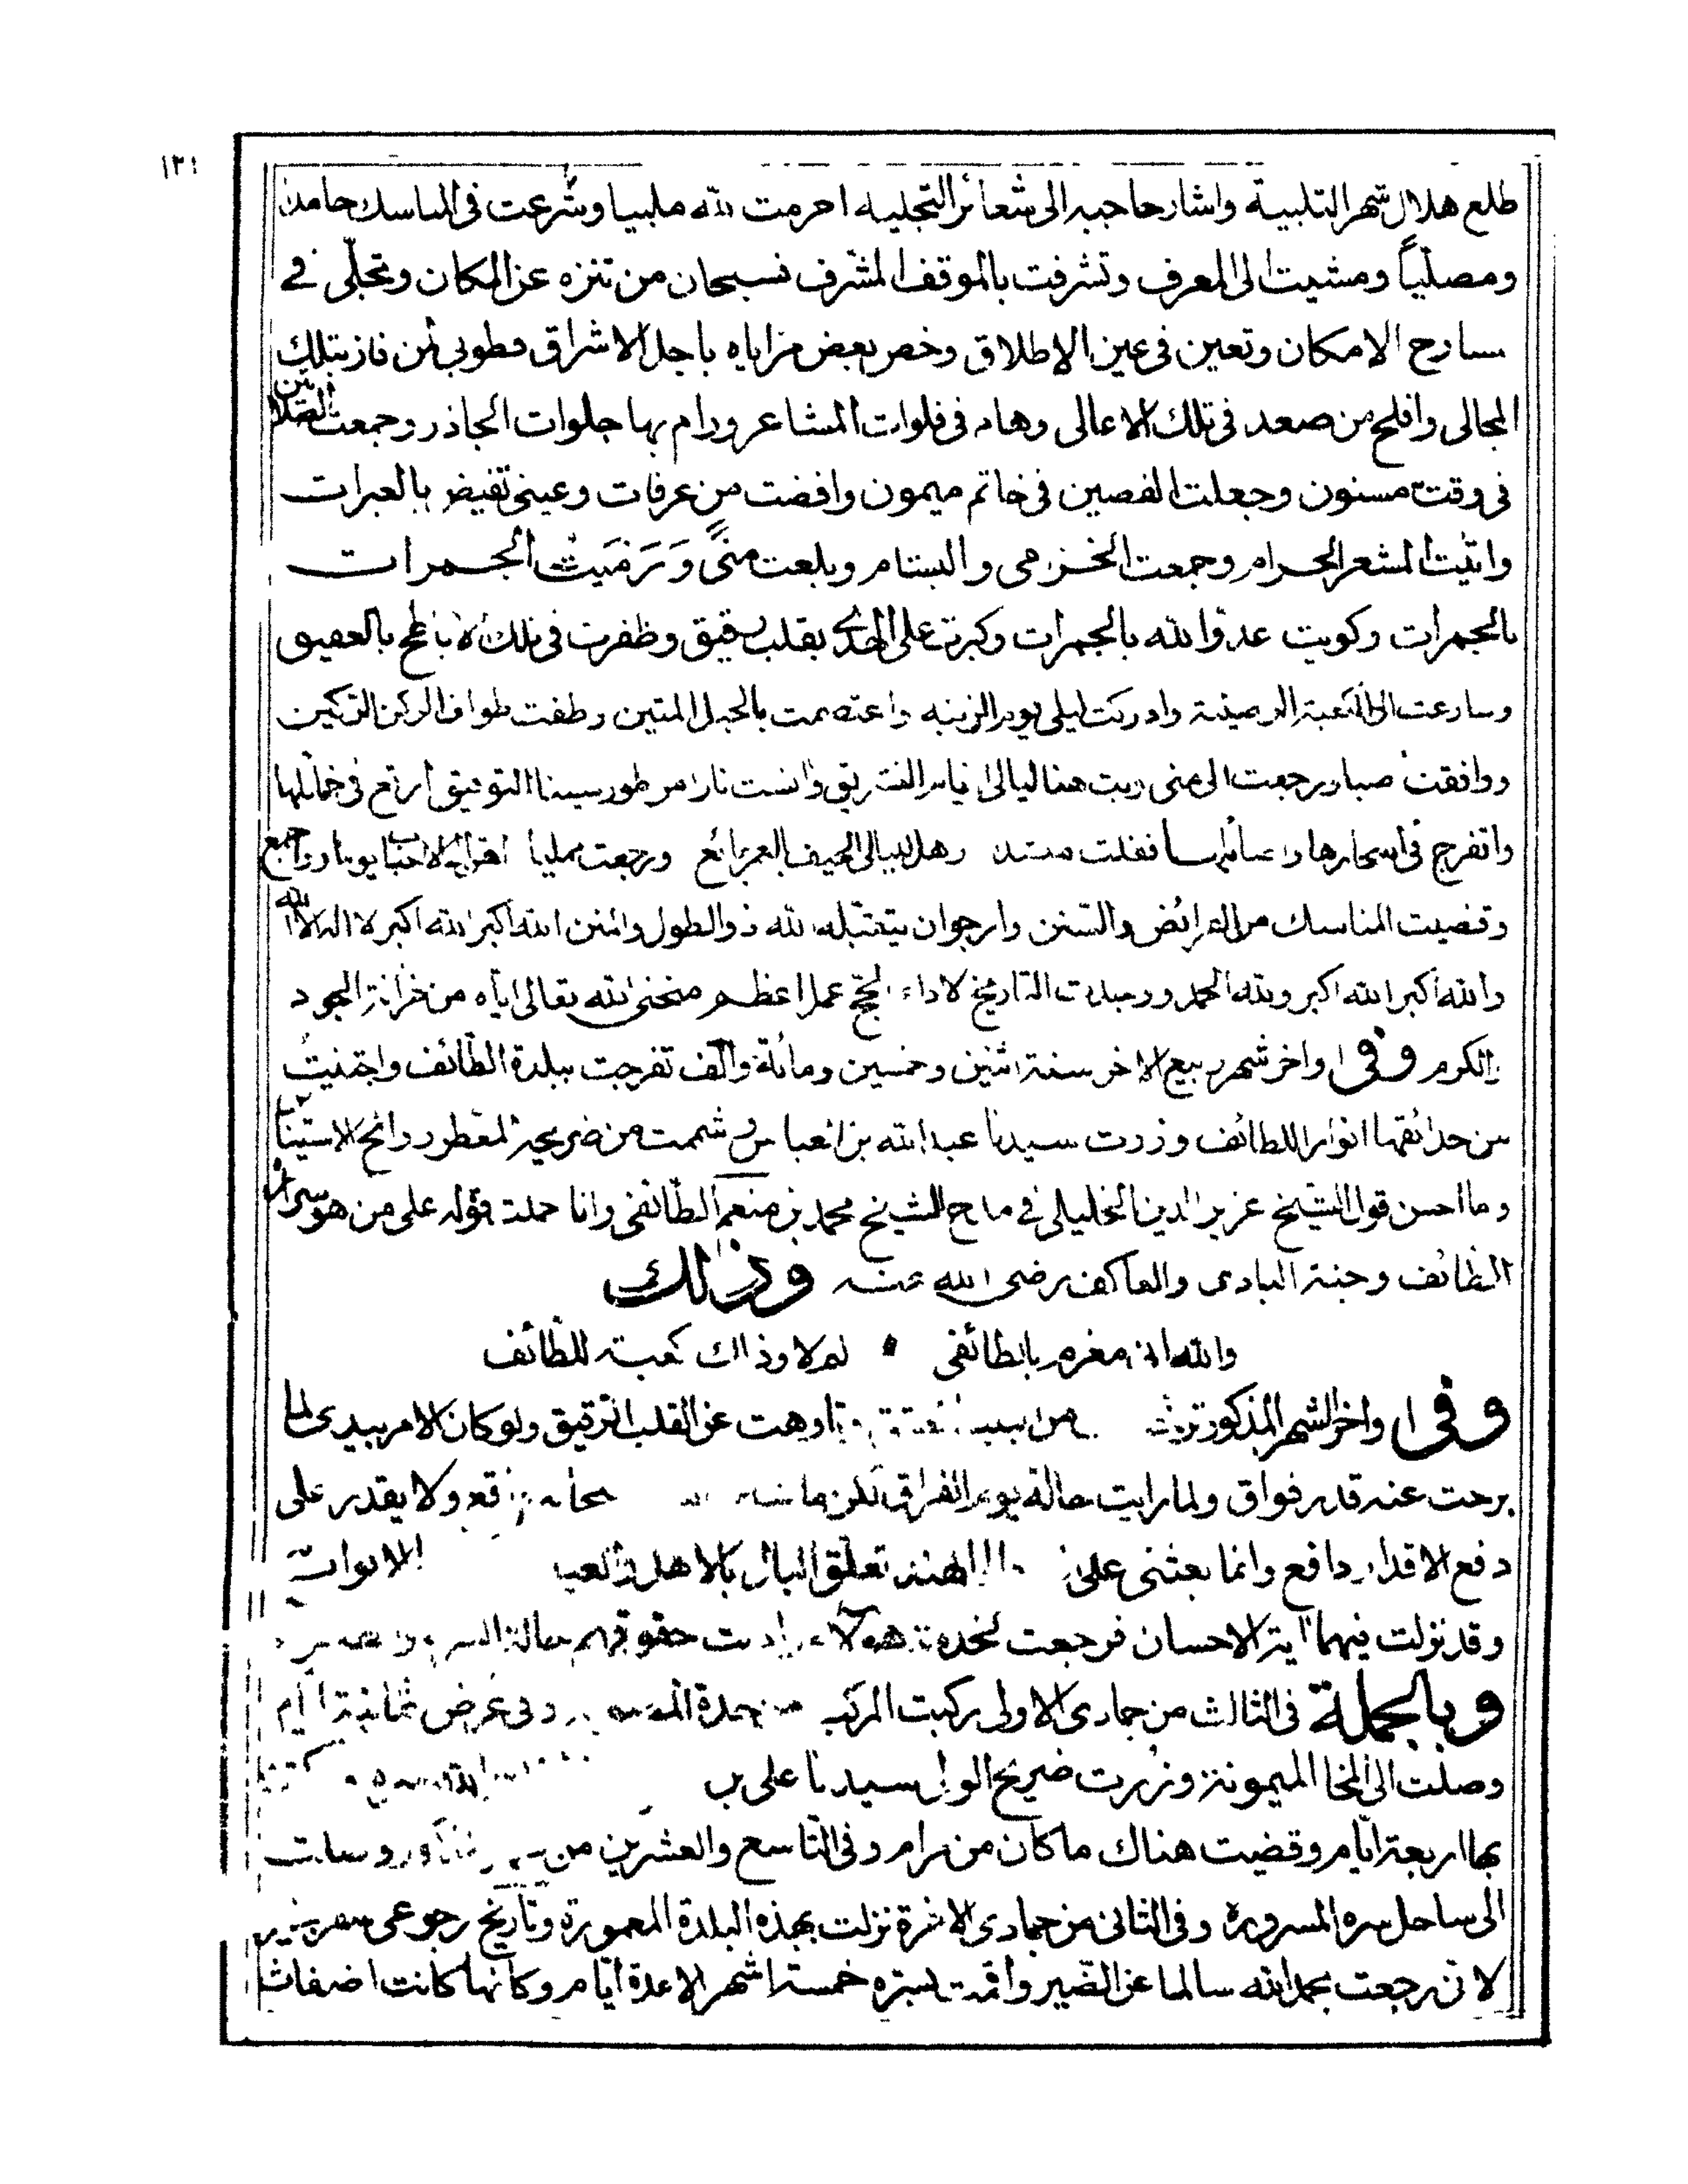 ١٢١
طلع هلال شهر التلبية واشار حاجبه الى شعائر التجليه احرمت لله ملبيا وشرعت فى المناسك حامدا
ومصلّياً ومشيت الى المعرف وتشرفت بالموقف المشرف فسبحان من تنزه عن المكان وتجلّى فى
مسارح الامكان وتعين فى عين الاطلاق وخص بعض مزاياه باجل الاشراق فطوبى لمن فاز بتلك
المجالى وافلح من صعد فى تلك الاعالى وهام فى فلوات المشاعر ورام بها جلوات الجاذر وجمعت الصلاتين
فى وقت مسنون وجعلت الفصين فى خاتم ميمون وافضت من عرفات وعينى تفيض بالعبرات
واتيت المشعر الحرام وجمعت الخزامى والبشام وبلغت منىً وَرَمَيْتُ الجمرات
بالجمرات وكويت عدوّ الله بالجمرات وكبرت على الهدى بقلب رقيق وظفرت فى تلك الاباطح بالعقيق
وسارعت الى الكعبة الرصينة وادركت ليلى يوم الزينه واعتصمت بالحبل المتين وطفت طواف الركن الركين
ووافقت صبا ورجعت الى منى وبت هنا ليالى ايام التشريق وانست نارا من طور سينا التوفيق ارتع فى خمائلها
واتفرج فى اسحارها واصائلها فقلت منشدا وهل ليالى الخيف بالعمر بائع ورجعت مليا
وقضيت المناسك من الفرائض والسنن وارجو ان يتقبله الله ذو الطول والمنن الله اكبر الله اكبر لا اله الا الله
والله اكبر الله اكبر ولله الحمد ووجدت التاريخ لاداء الحج عمل اعظم منحنى الله تعالى اياه من خزانة الجود
والكرم وفى اواخر شهر ربيع الاخر سنة اثنين وخمسين ومائة والف تفرجت ببلدة الطائف واجتنيت
من حدائقها انوار اللطائف وزرت سيدنا عبد الله بن العباس وشممت من ضريحه المعطر روائح الاستيناس
وما احسن قول الشيخ عزيز الدين الخليلى فى مدح الشيخ محمد بن منعم الطائفى وانا حملت قوله على من هو سراج
الطائف وجنة البادى والعاكف رضى الله عنه وذلك
والله انى مغرم بالطائفى لم لا وذاك كعبة للطائف
وفى اواخر الشهر المذكور من القلب الرقيق ولو كان الامر بيدى لما
برحت عنه قدر فواق ولما رايت حالة يوم الفراق لكن ما شاء الله واقع ولا يقدر على
دفع الاقدار دافع وانما بعثنى على الهند تعلق البال بالاهل
وقد نزلت فيهما آية الاحسان فرجعت لخدمة هؤلاء واديت حقوقهم
وبالجملة فى الثالث من جمادى الاولى ركبت المركب من جدة وفى عرض ثمانية ايام
وصلت الى المخا الميمونة وزرت ضريح الولى سيدنا على بن
بها اربعة ايام وقضيت هناك ما كان من مرام وفى التاسع والعشرين من
الى ساحل سره المسرورة وفى الثانى من جمادى الاخرة نزلت بهذه البلدة المعمورة وتاريخ رجوعى سفر بخير
لانى رجعت بحمد الله سالما عن الضير واقمت بسره خمسة اشهر الا عدة ايام وكانها كانت اضغاث